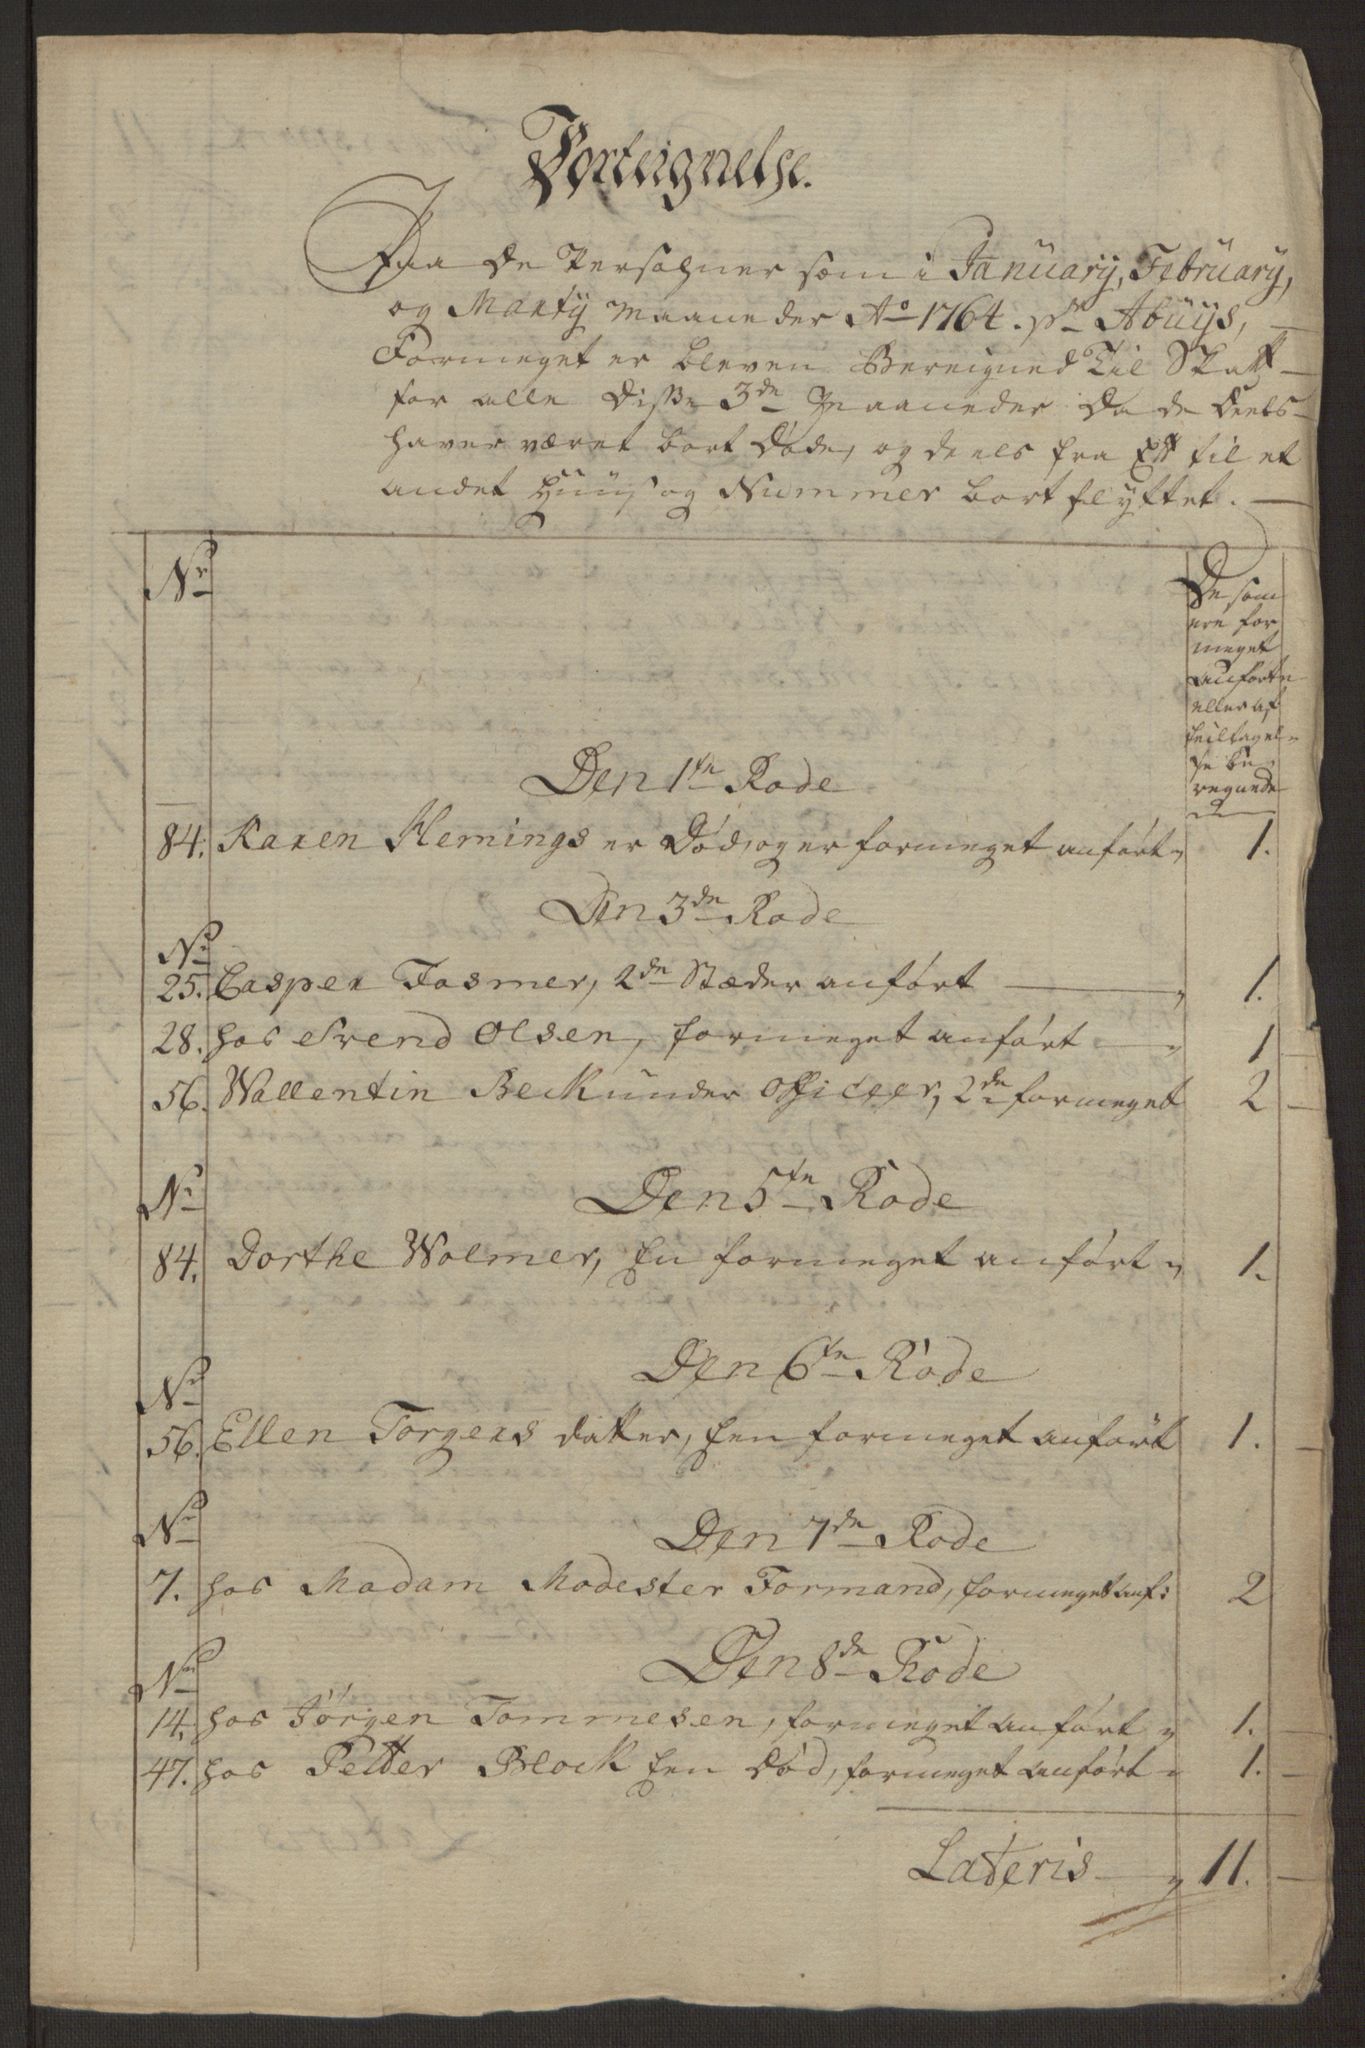 Forteignelse.
Paa de Persohner som i January, February,
og Marty Maaneder Ao 1764. pr Abuys,
Formeget er bleven Bereigned Til Skatt
for alle disse 3de Maaneder da de deels
haver været bort Døde, og deels fra Ett til et
andet Huus og Nummer bortflyttet.
No
De som
ere for
meget
anførte
eller af
feiltagel-
se be-
regnede
Den 1te Rode
84. Karen Flemings er Død, og er formeget anført „ 1.
Den 3de Rode
No
25. Casper Fasmer, 2de Stæder anført — „ 1.
28. hos Svend Olsen, formeget anført — „ 1
56. Wallentin Beck under Officeer, 2de formeget 2
No Den 5te Rode
84. Dorthe Wolmer, En formeget anført „ 1.
Den 6te Rode
No
56. Ellen Torgers datter, Een formeget anført 1.
No
Den 7de Rode
7. hos Madam Modester Formand, formeget anf: 2
Den 8de Rode
No
14. hos Jörgen Tommesen, formeget anført „ 1.
47. hos Petter Block Een Død, formeget anført „ 1.
Lateris — „ 11.